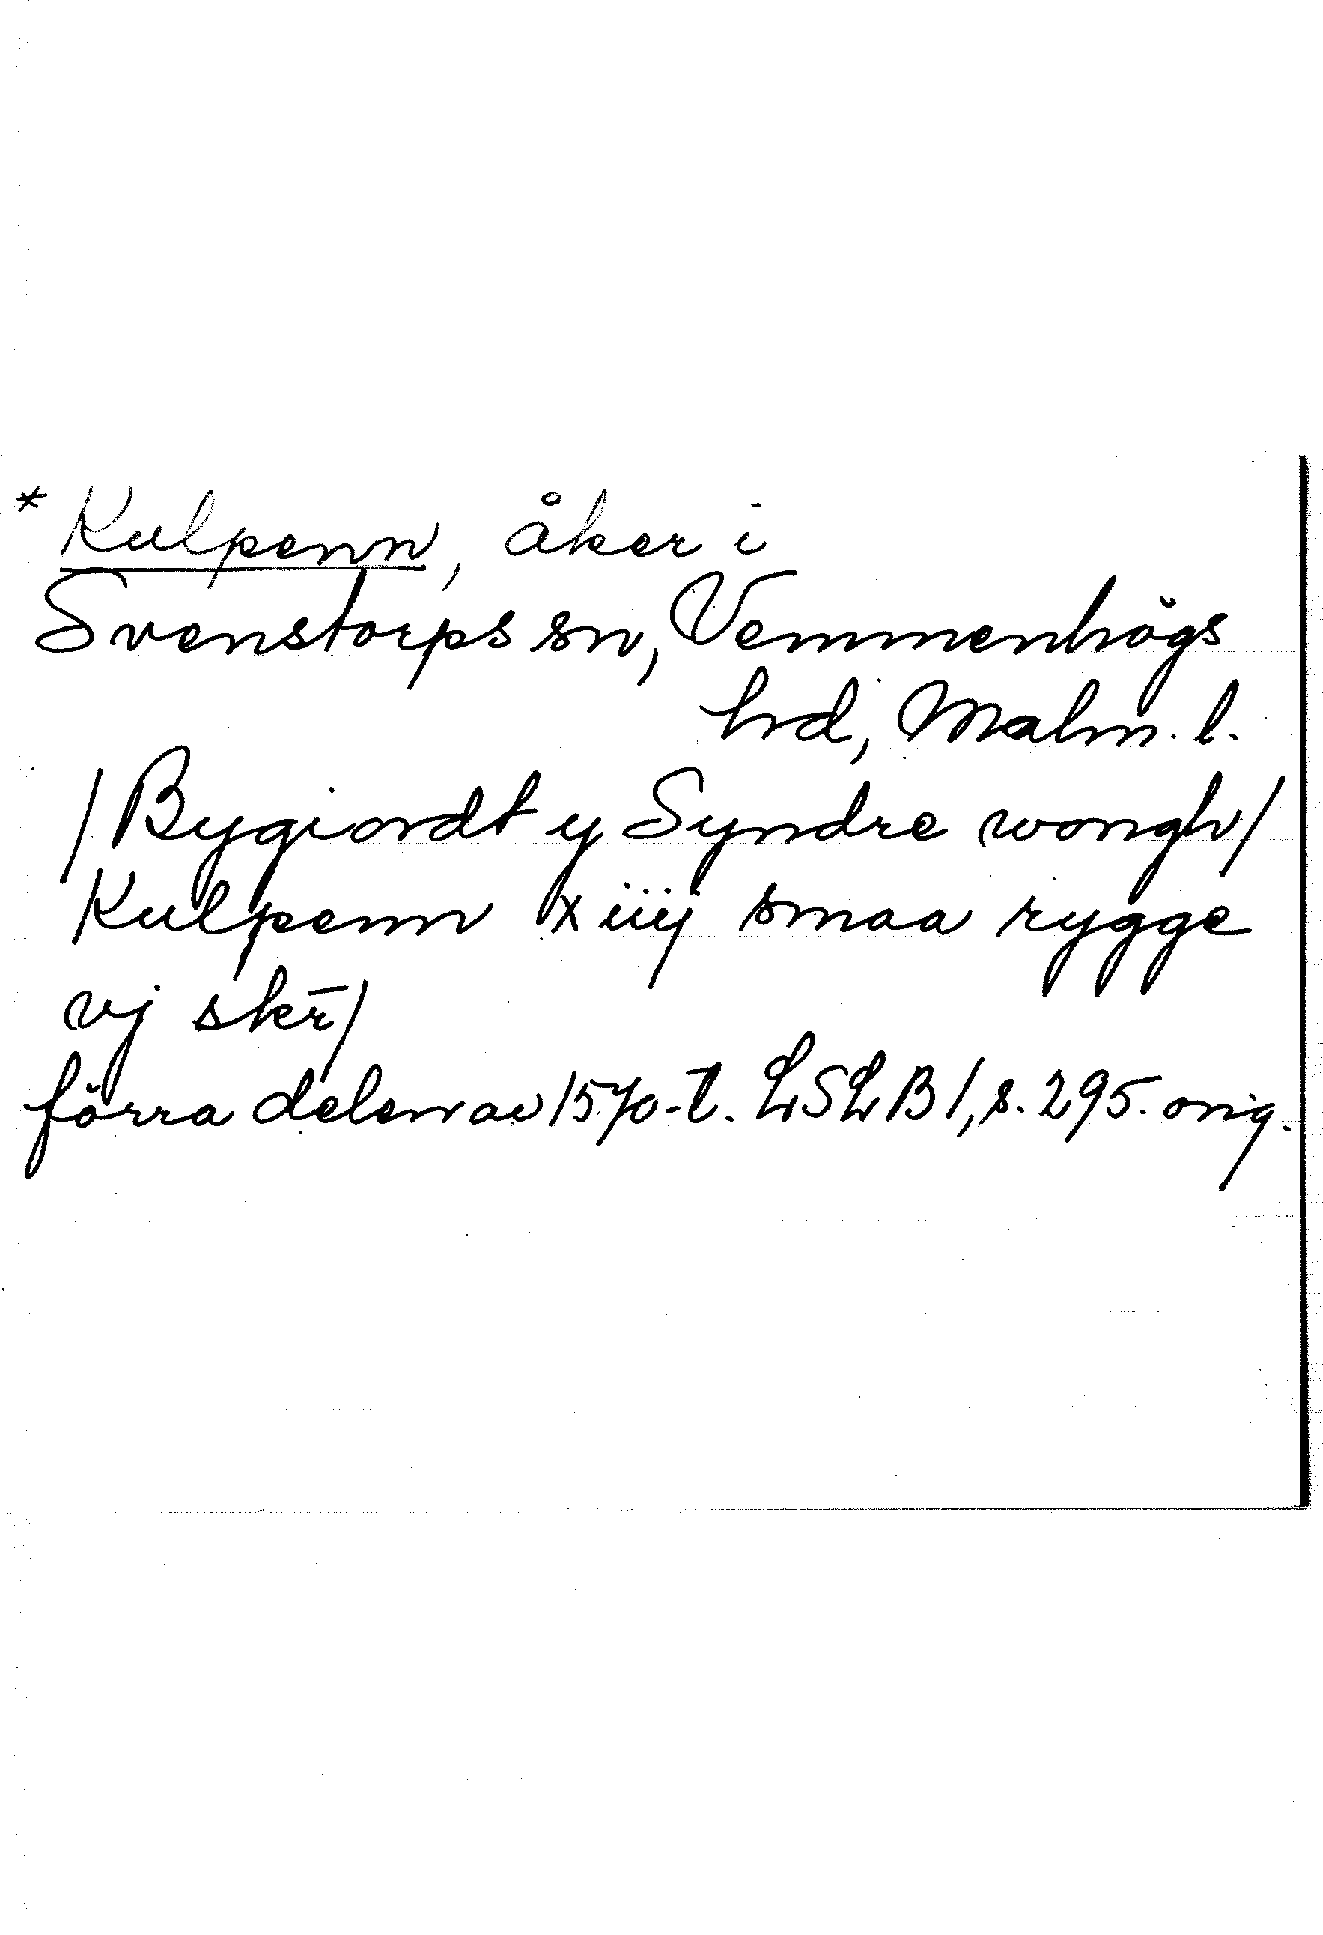 * Kulpenn, åker i
Svenstorps sn, Vemmenhögs
hd, Malm. l.
/Bygiordt y Syndre wongh/
Kulpenn xiiij smaa rygge
vj skr̄/
förra delen av 1570-t. LSLB 1, s. 295. orig.